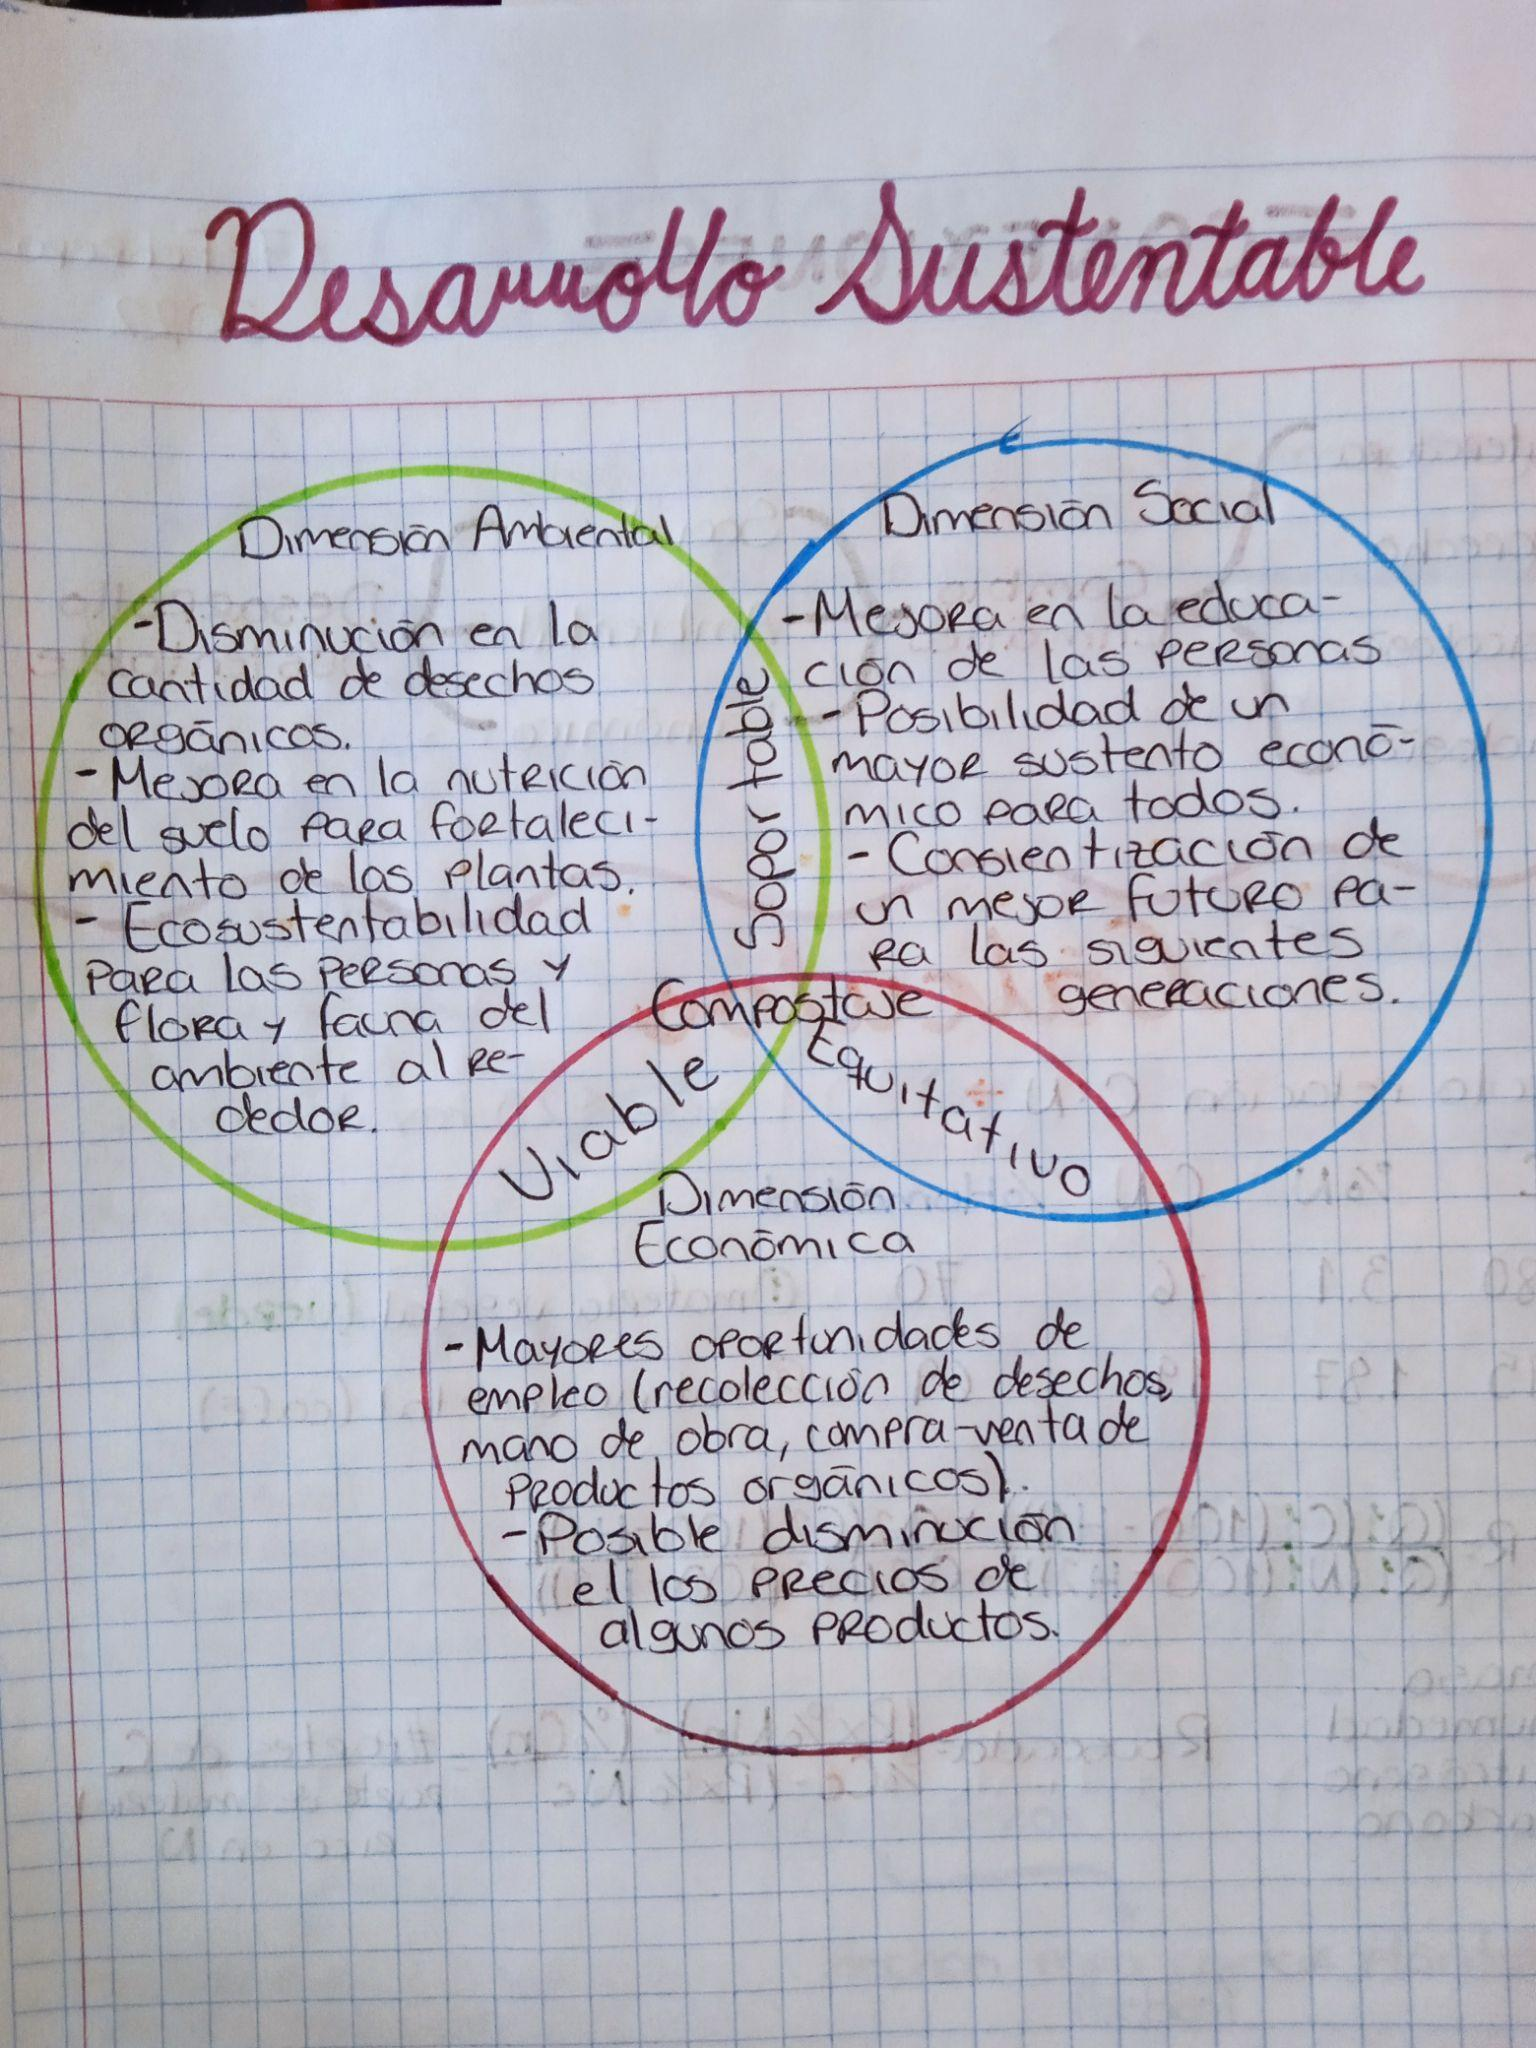 Desarrollo Sustentable
Dimensión Ambiental
-Disminución en la
cantidad de desechos
orgánicos.
-Mejora en la nutrición
del suelo para fortaleci-
miento de las plantas.
- Ecosustentabilidad
para las personas y
flora y fauna del
ambiente al re-
dedor.
Dimensión Social
-Mejora en la educa-
ción de las personas
-Posibilidad de un
mayor sustento econó-
mico para todos.
- Consientización de
un mejor futuro pa-
ra las siguientes
generaciones.
Soportable
Compostaje
Viable
Equitativo
Dimensión
Económica
-Mayores oportunidades de
empleo (recolección de desechos,
mano de obra, compra-venta de
productos orgánicos).
-Posible disminución
el los precios de
algunos productos.